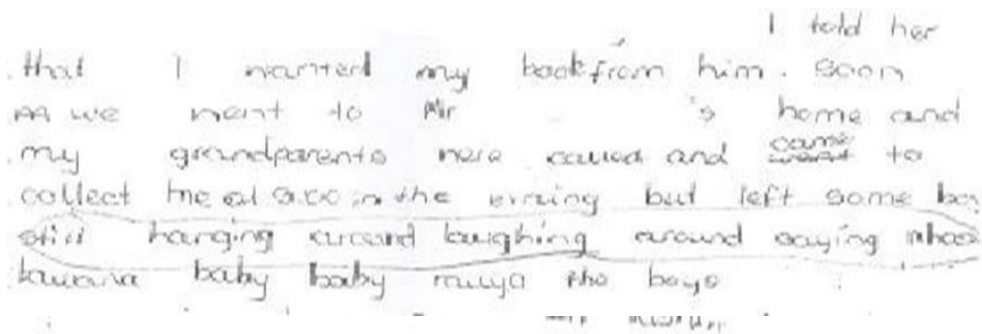 I told her
that I wanted my book from him. Soon
as we went to Mr 's home and
my grandparents were called and came to
collect me at 9.00 in the evining but left some
still hanging around laughing around saying
baby baby the boys